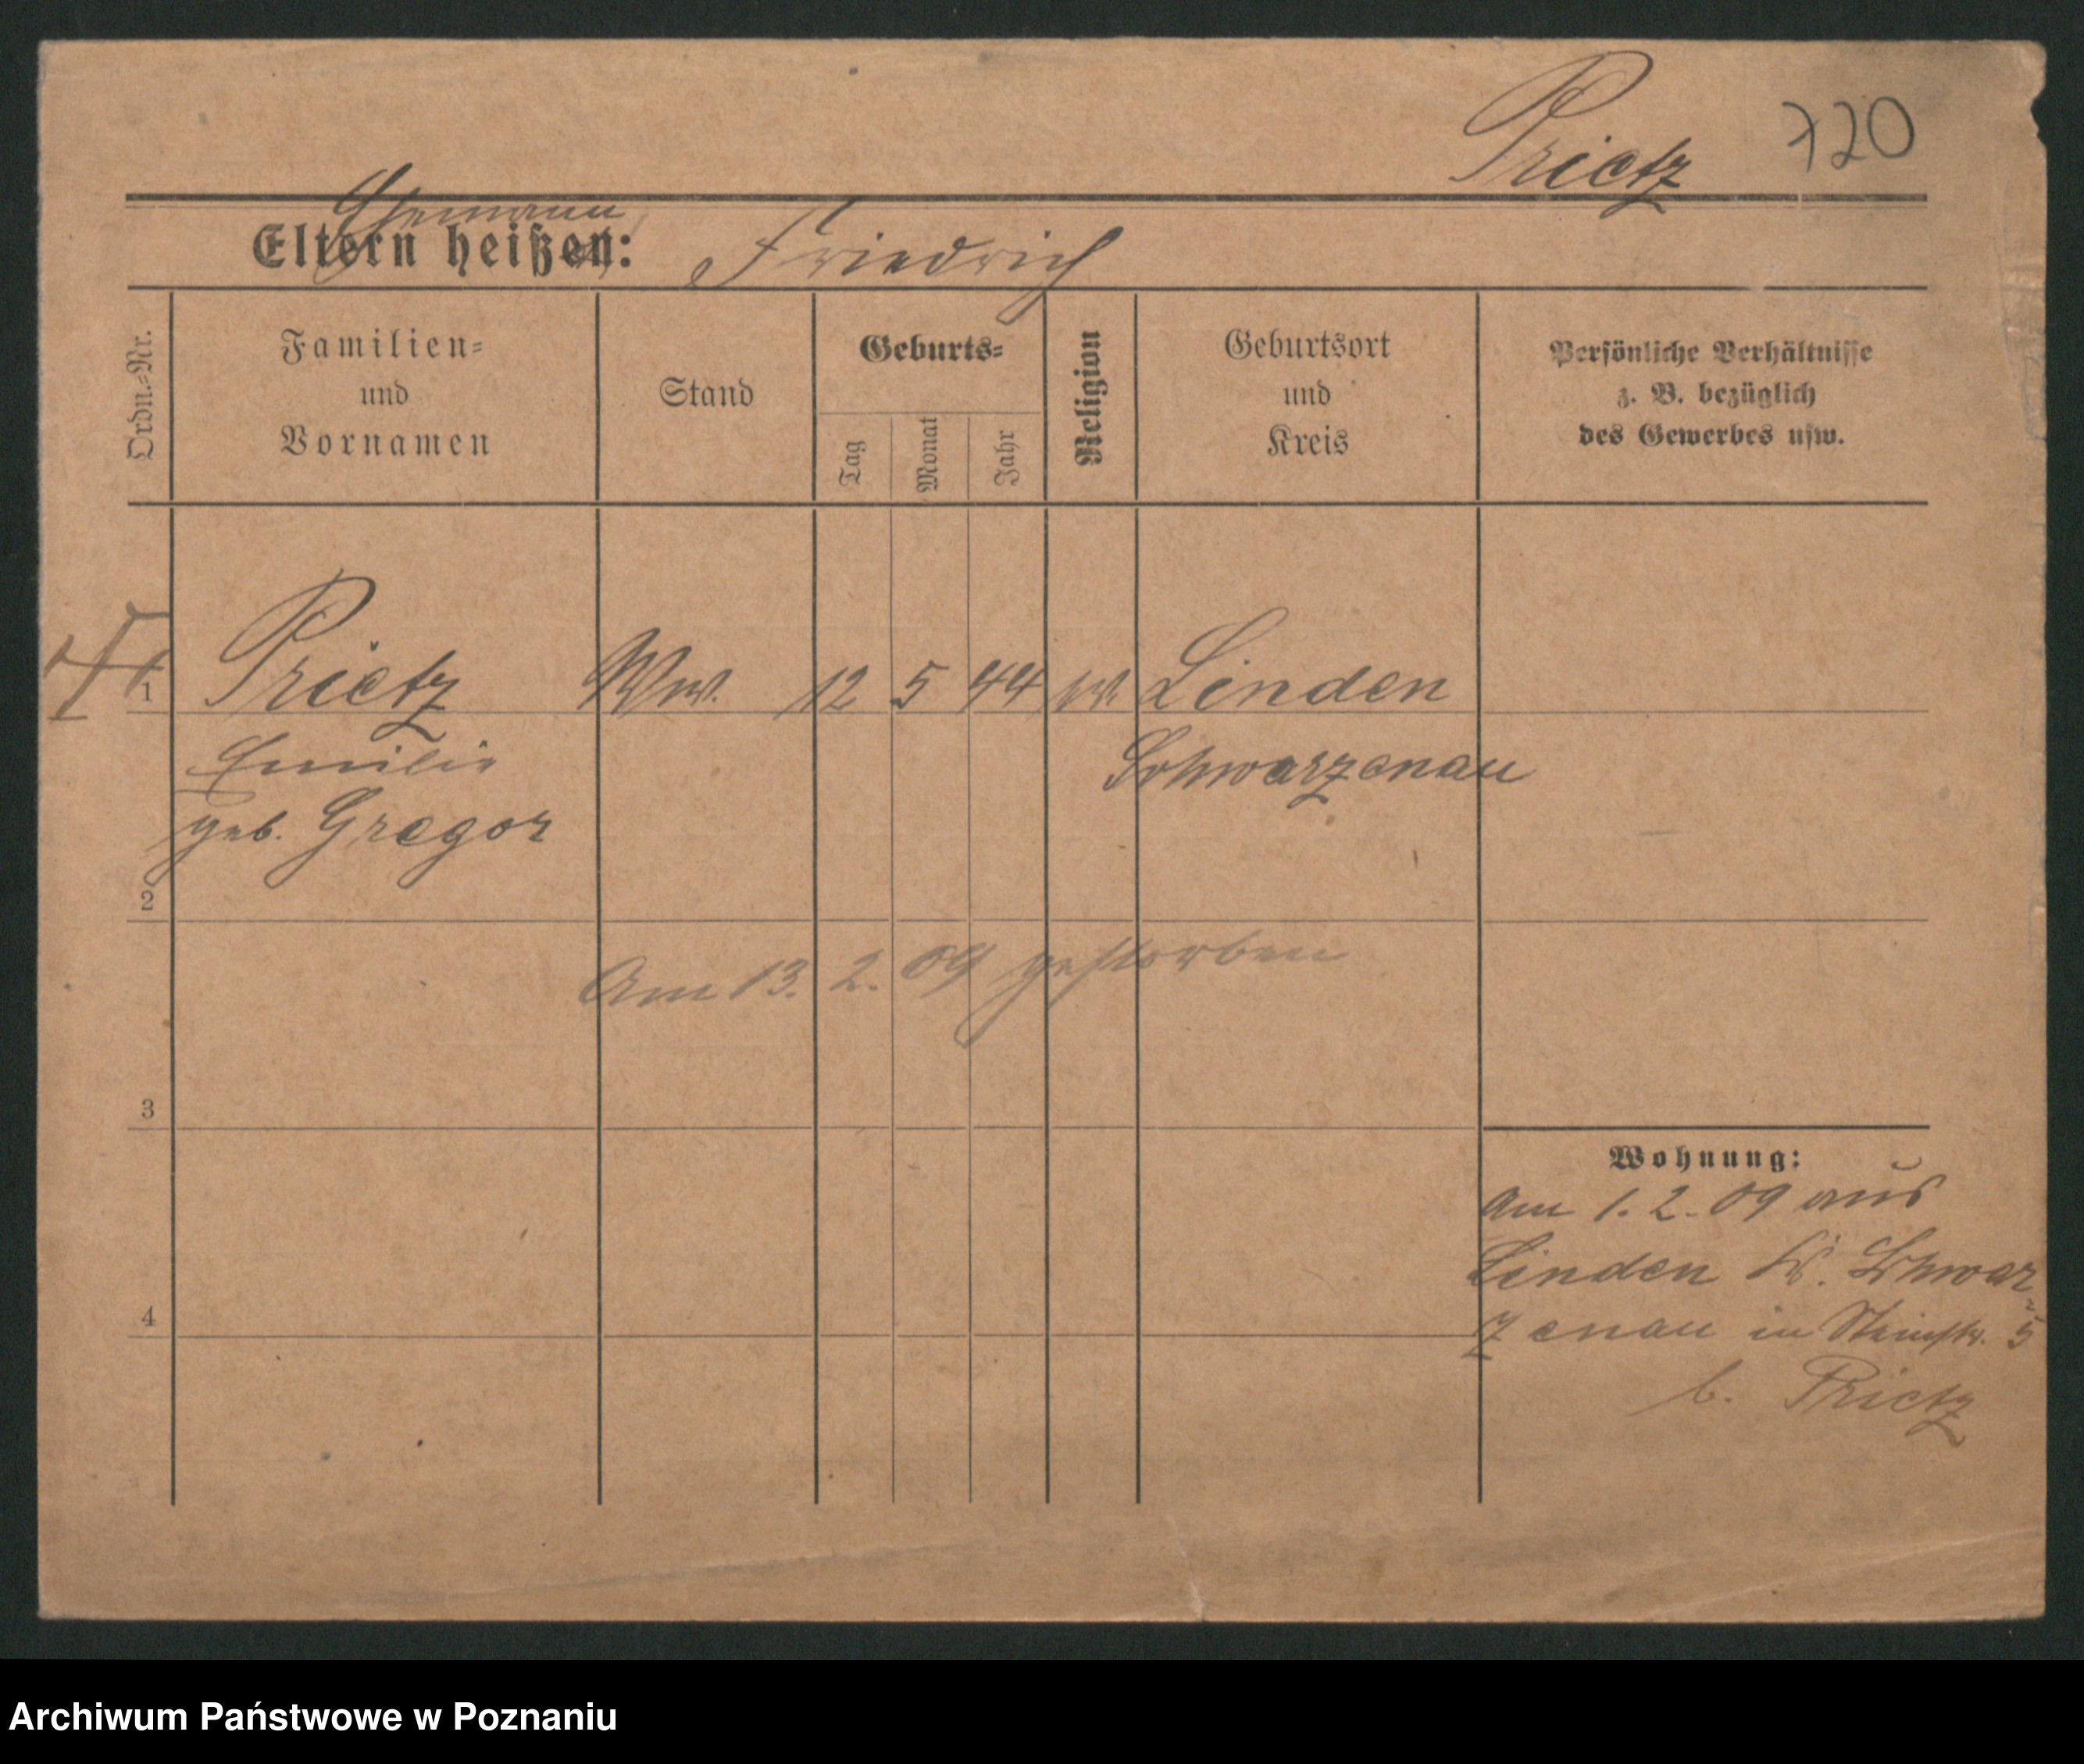 Prietz 720
Ehemann
Eltern heißen: Friedrich
Ordn.-Nr.
Familien-
und
Vornamen
Stand
Geburts-
Tag
Monat
Jahr
Religion
Geburtsort
und
Kreis
Persönliche Verhältnisse
z. B. bezüglich
des Gewerbes usw.
1 Prietz Ww. 12 5 44 Linden
Emilie Schwarzenau
geb. Gregor
2
Am 13. 2. 09 gestorben
3
Wohnung:
Am 1. 2. 09 aus
Linden Schwar
4
zenau in Steinstr. 5
b. Prietz
Archiwum Państwowe w Poznaniu